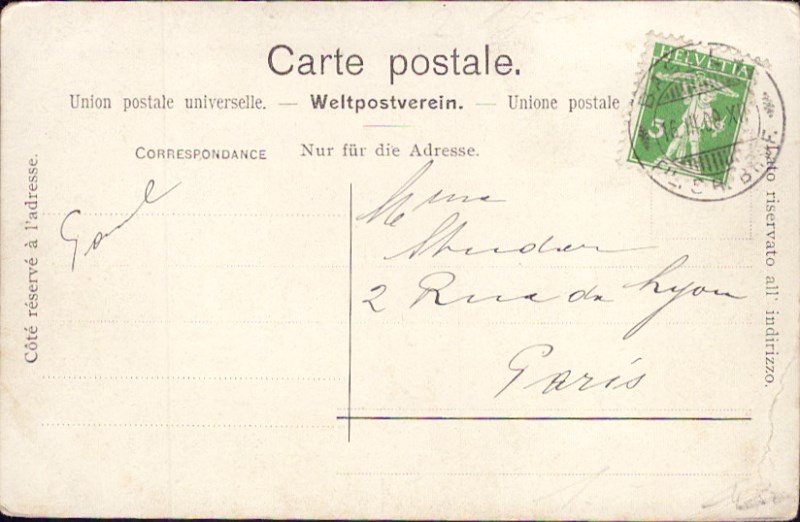 Carte postale.
Union postale universelle. — Weltpostverein. — Unione postale
CORRESPONDANCE Nur für die Adresse.
Côté réservé à l'adresse.
Lato riservato all' indirizzo.
HELVETIA
5
Paul
Mme
2 Rue de Lyon
Paris